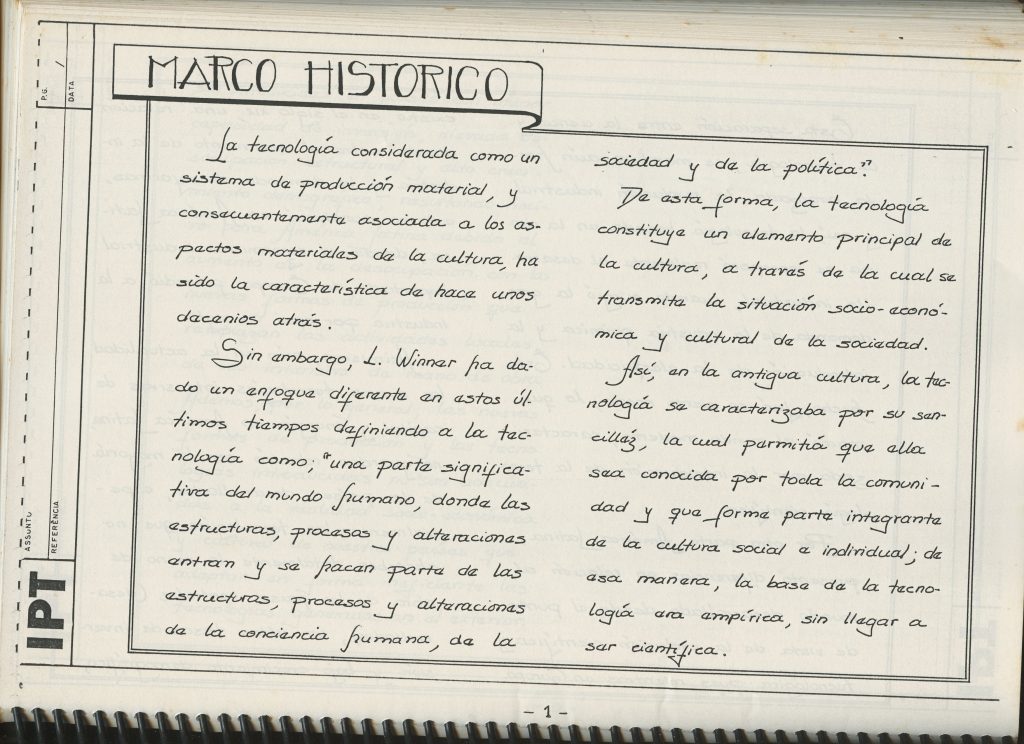 MARCO HISTORICO
La tecnología considerada como un
sistema de producción material, y
consecuentemente asociada a los as-
pectos materiales de la cultura, ha
sido la característica de hace unos
decenios atrás.
Sin embargo, L. Winner ha da-
do un enfoque diferente en estos úl-
timos tiempos definiendo a la tec-
nología como; "una parte significa-
tiva del mundo humano, donde las
estructuras, procesos y alteraciones
entran y se hacen parte de las
estructuras, procesos y alteraciones
de la conciencia humana, de la
sociedad y de la política".
De esta forma, la tecnología
constituye un elemento principal de
la cultura, a través de la cual se
transmite la situación socio-econó-
mica y cultural de la sociedad.
Así, en la antigua cultura, la tec-
nología se caracterizaba por su sen-
cilléz, la cual permitiá que ella
sea conocida por toda la comuni-
dad y que forme parte integrante
de la cultura social e individual; de
esa manera, la base de la tecno-
logía era empírica, sin llegar a
ser científica.
- 1 -
PG.
DATA
/
ASSUNTO
REFERÊNCIA
IPT